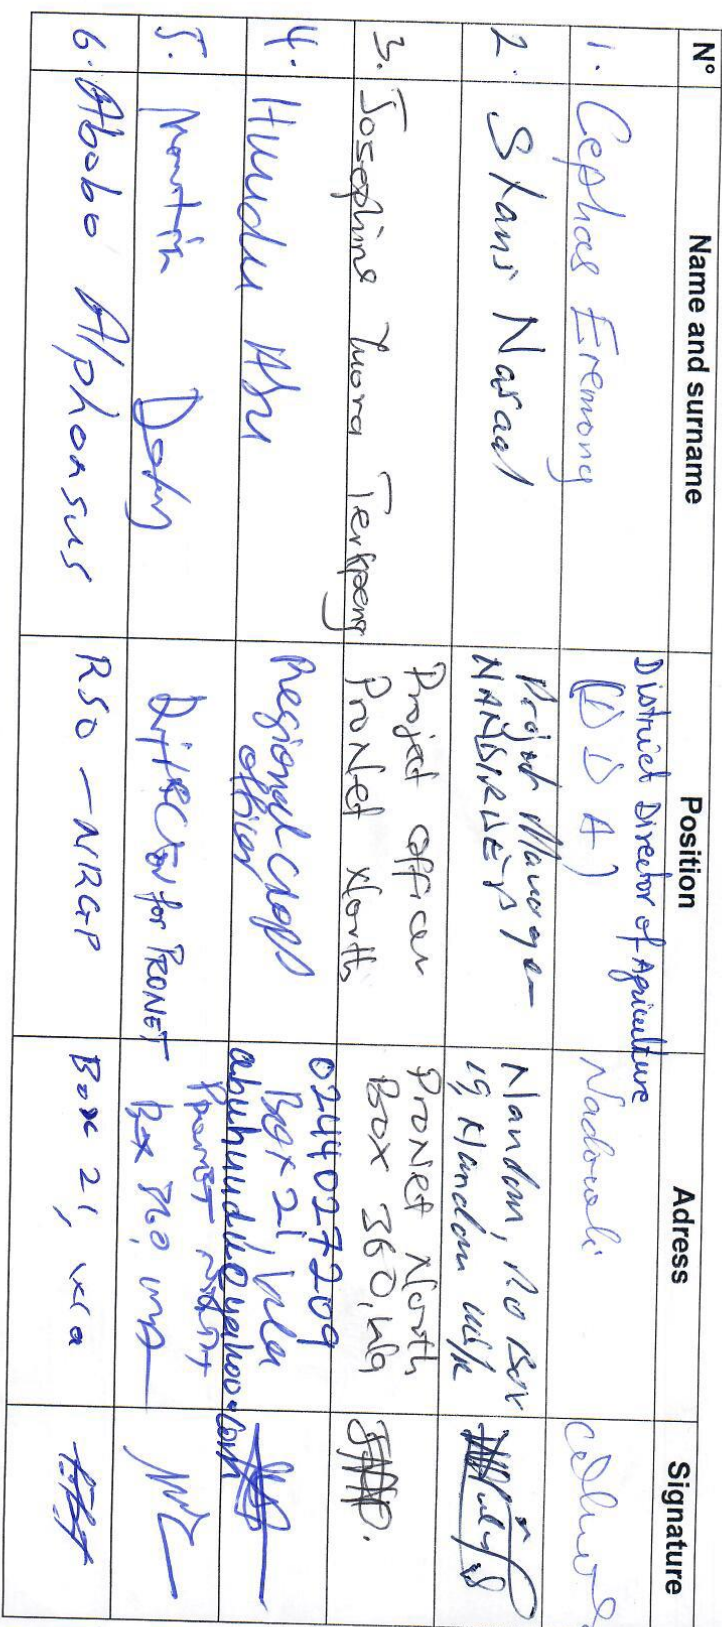 N° Name and surname Position Adress Signature
1. Cephas Eremong District Director of Agriculture
(DDA) Nadowli
2. Stanis Nasaal Project Manager
NANDIRDEP Nandom, P.O Box
19, Nandom
3. Josephine Zuora Terkpeng Project officer
ProNet North ProNet North
Box 360, Wa
4. Humdu Abu Regional Crops
Officer 0244027209
Box 21, Wa
abuhuudu@yahoo.com
5. Martin Dery Director for PRONET PRONET North
Box 360, Wa
6. Abobo Alphonsus RSO - NRGP Box 21, Wa